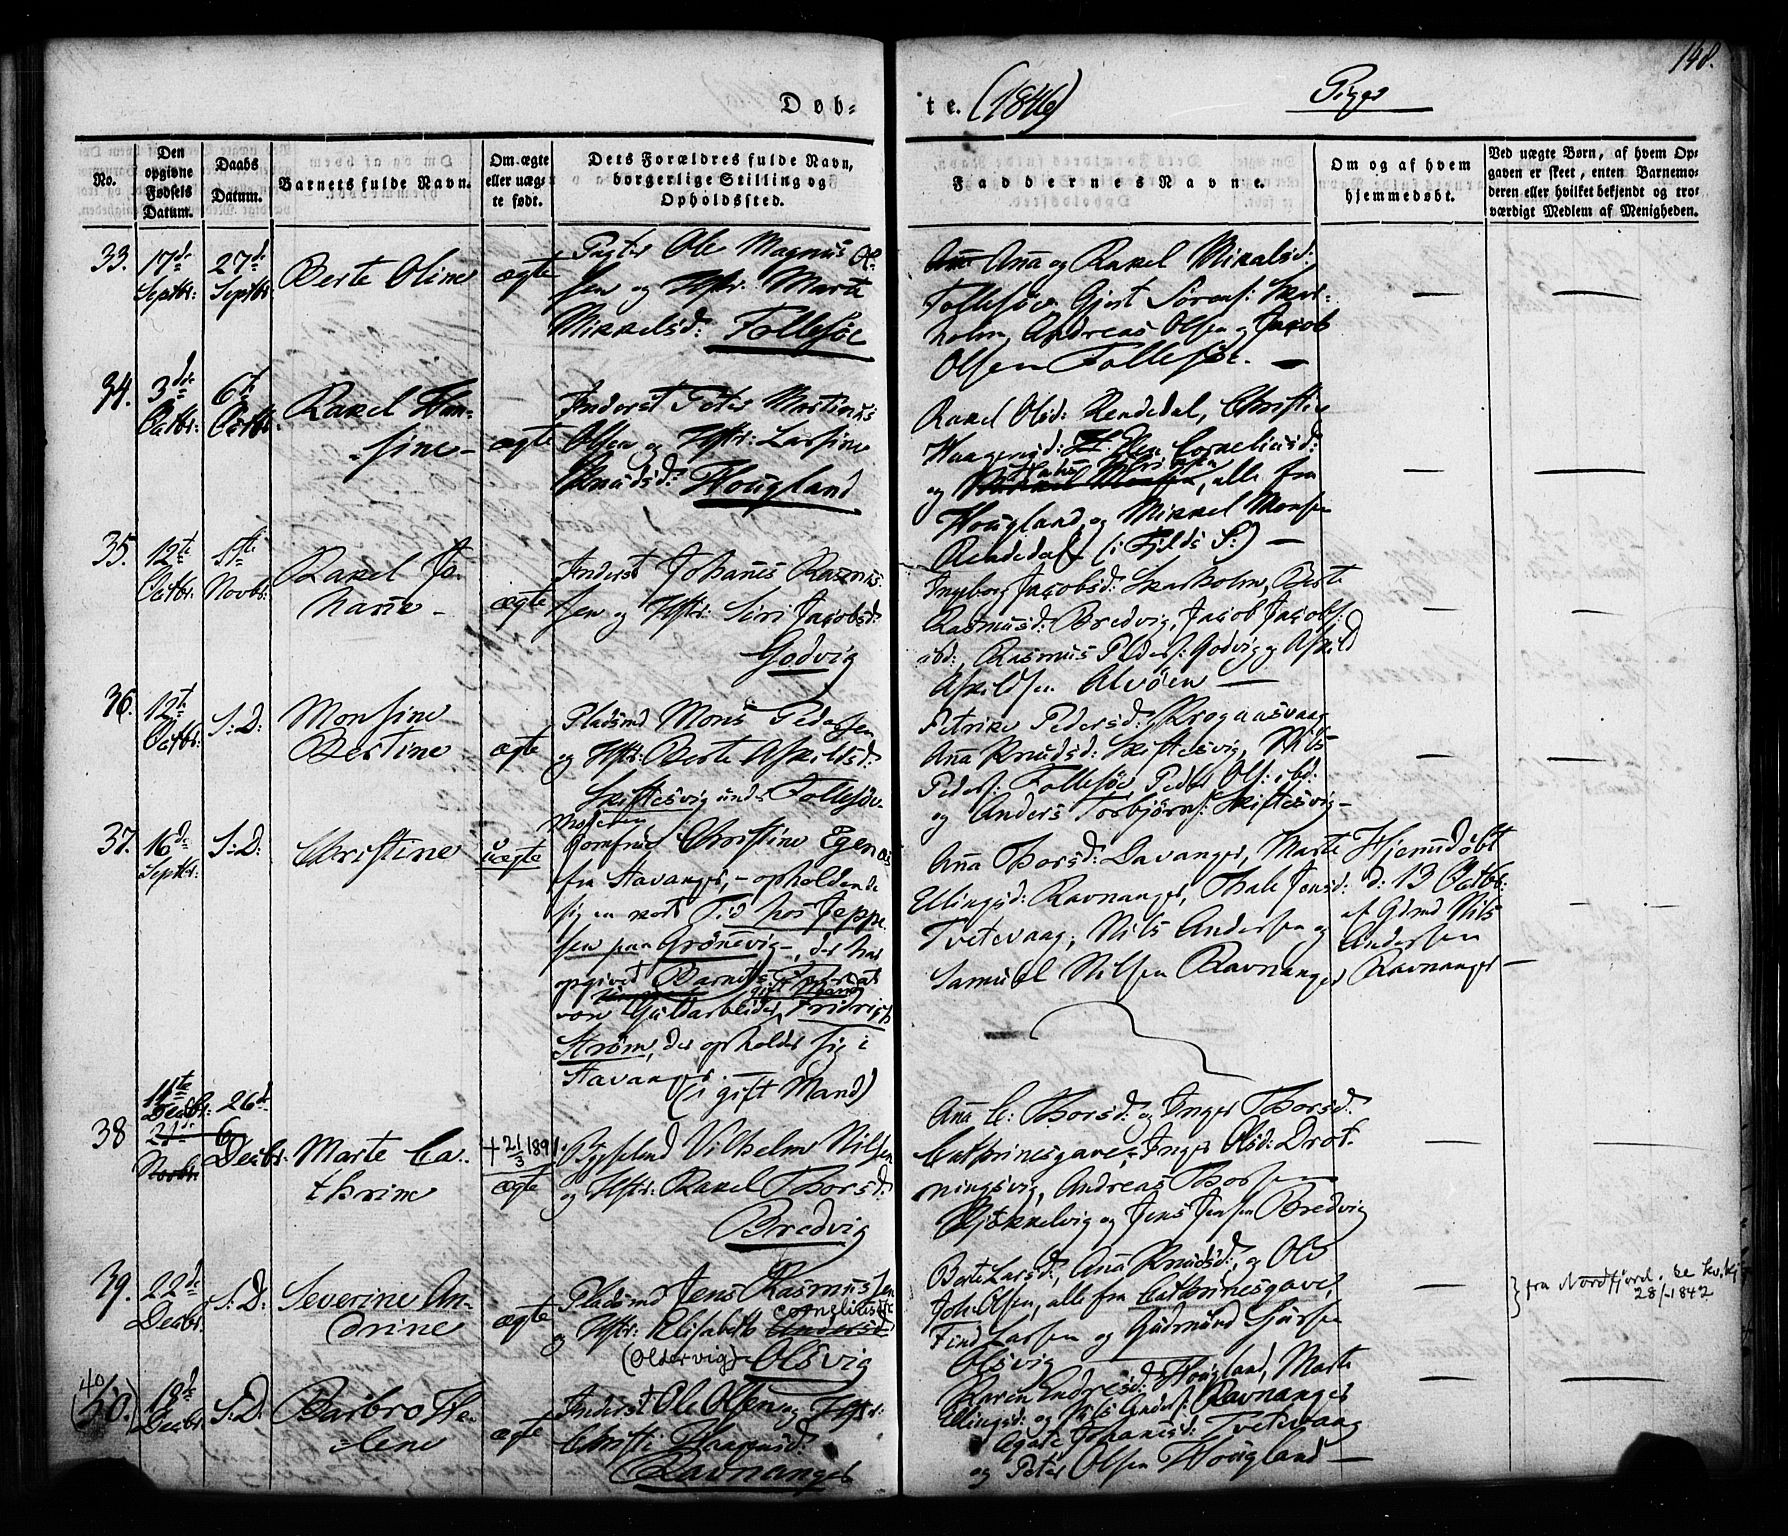 148.
Døb-
te. (1846)
Piger
No.
Den opgivne Fødsels Datum.
Daabs Datum.
Barnets fulde Navn.
Om ægte eller uægte født.
Dets Forældres fulde Navn, borgerlige Stilling og Opholdssted.
Faddernes Navne.
Om og af hvem hjemmedøbt.
Ved uægte Børn, af hvem Opgaven er skeet, enten Barnemoderen eller hvilket bekjendt og troværdigt Medlem af Menigheden.
33. 17de Septbr: 27de Septbr: Berte Oline ægte
Ole Magnus Ol-
sen og Hstr: Marte
Mikkelsd: Follesøe
Ana og Rakel Mikalsd:
Follesøe, Gjert Sørens: Skar-
holm, Andreas Olsen og Jacob
Olsen Follesøe. —
34. 3die Octbr: 6te Octbr: Rakel Han-
sine — ægte
Inderst Peter Martinus
Olsen og Hstr: Larsine
Knudsd: Hougland
Rakel Olsd: Rendedal, Christi
Haagensd: Elen Corneliusd:
og alle fra
Hougland og Mikkel Monsen
Rendedal (i Fjelds S:) —
35. 12te Octbr: 1ste Novbr: Rakel Jo-
hanne — ægte
Inderst Johanes Rasmus-
sen og Hstr: Siri Jacobsd:
Godvig
Ingeborg Jacobsd: Skarholm, Berte
Rasmusd: Bredvig, Jacob Jacobs:
ibd:, Rasmus Peders: Godvig og Askild
Askildsen Alvøen —
36. 12te Octbr: S: D: Monsine
Bertine ægte
Pladsmd Mons Pedersen
og Hstr: Berte Askildsd:
Skiftesvig under Follesøe
Petrike Pedersd: Krogaasvaag
Ana Knudsd: Skiftesvig, Nils
Peders: Follesøe, Peder Ols: ibd:
og Anders Torbjørns: Skiftesvig —
37. 16de Septbr: S: D: Christine uægte
Moderen
Jomfrue Christine Egenæs
fra Stavanger, — opholdende
sig en kort Tid hos Jeppe-
sen paa Grønevig —, der har
opgivet Barnets Fader at
gift Mand
være Guldarbeider Fridrich
Strøm, der opholder sig i
Stavanger. —
(i gift Mand)
Ana Thorsd: Davanger, Marte
Ellingsd: Ravnanger, Thale Jensd:
Tvetevaag, Nils Andersen og
Samuel Nilsen Ravnanger
Hjemmdøbt
d: 13 Octbr:
af Gdmd Nils
Andersen
Ravnanger —
38 11te Decbr: 21de Novbr: 26de 6 Decbr: Marte Ca-
thrine + 21/3 1891 ægte
Bygselmd Vilhelm Nilsen
og Hstr: Rakel Thorsd:
Bredvig
Ana C: Thorsd: og Inger Thorsd:
Cathrinesgave, Inger Olsd: Drot-
ningsvig, Andreas Thorsen
Kjøkkelvig og Jens Jensen Bredvig
39. 22de Decbr: S: D: Severine An-
drine ægte
Pladsmd Jens Rasmussen
corneliusdtr
og Hstr: Elisabeth Andersd:
(Oldervig) Olsvig
Berte Larsd:, Ana Knudsd:, og Ole
Joh: Olsen, alle fra Cathrinesgave,
Find Larsen og Gudmund Larsen
Olsvig —
} fra Nordfjord. se kv, kj
28/-1842
40
(50.) 18de Decbr: S: D: Barbro He-
lene ægte
Inderst Ole Olsen og Hstr:
Christi Haagensd:
Ravnanger
Karen Endresd: Hougland, Marte
Ellingsd: og Nils Anders: Ravnanger
Agate Johanesd: Tvetevaag
og Peter Olsen Hougland —